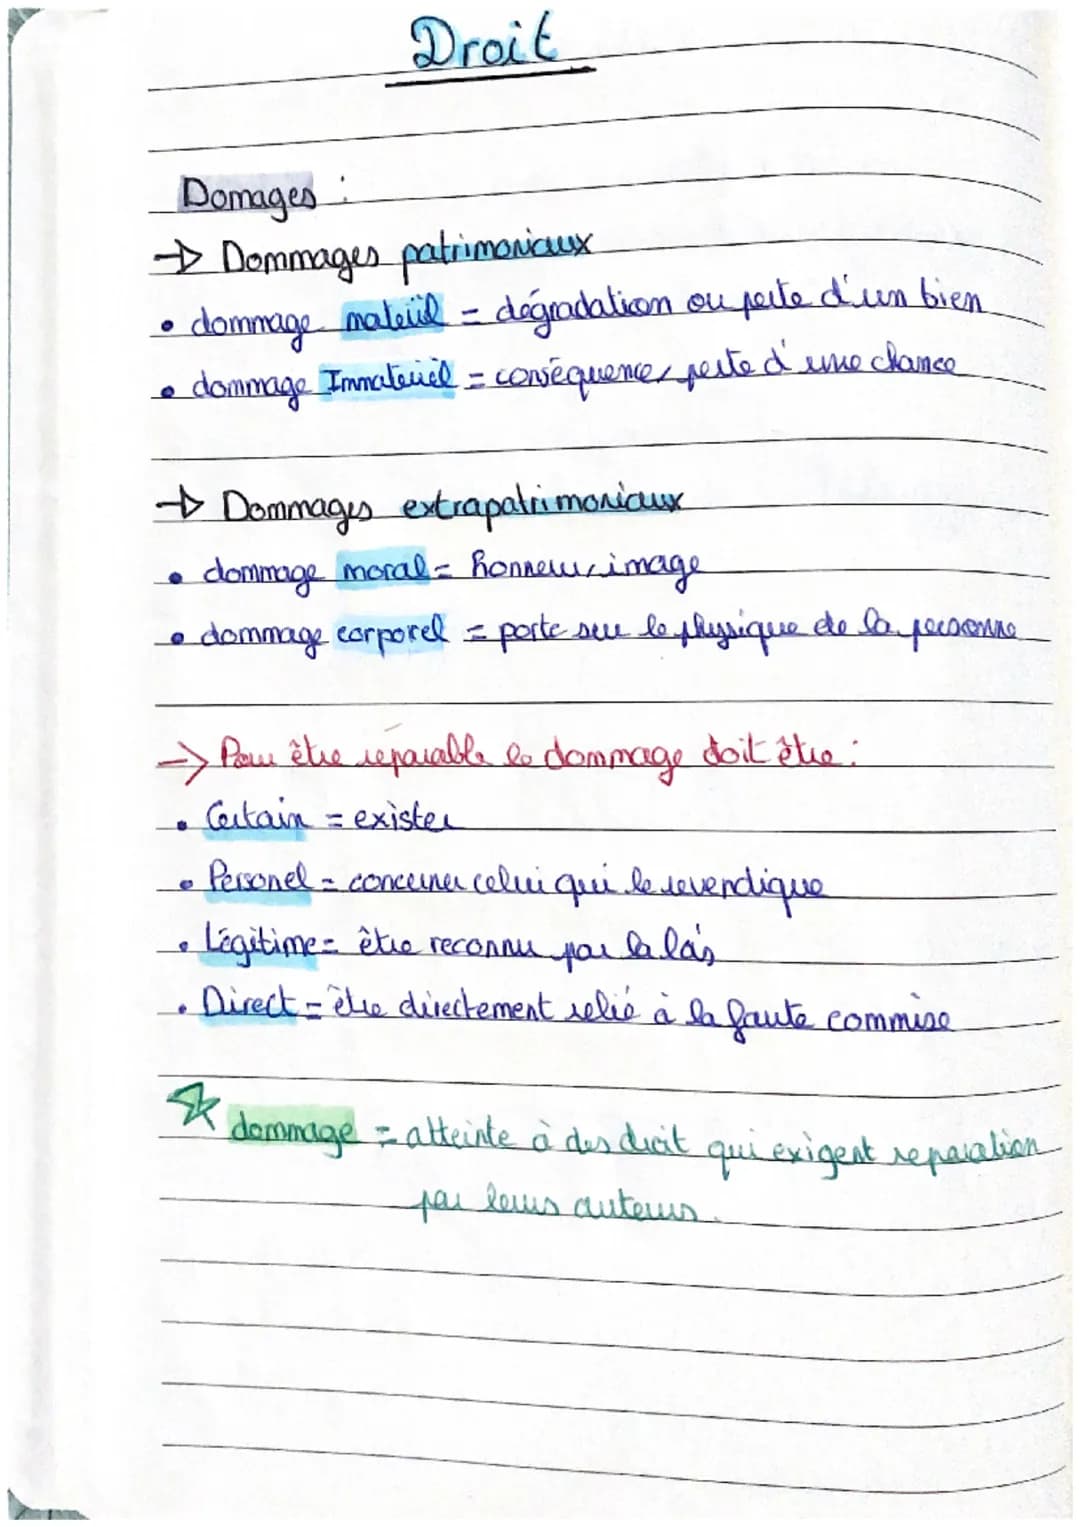 Droit
Domages :
→ Dommages patrimoniaux
• dommage matériel = dégradation ou perte d'un bien
• dommage Immateriel = conséquence, perte d'une chance
→ Dommages extrapatrimoniaux
• dommage moral = honneur, image
• dommage corporel = porte sur le physique de la personne
→ Pour être réparable le dommage doit être :
• Certain = exister
• Personel = concerner celui qui le revendique
• Légitime = être reconnu par la
• Direct = être directement relié à la faute commise
☆ dommage = atteinte à des droit qui exigent reparation
par leurs auteurs.